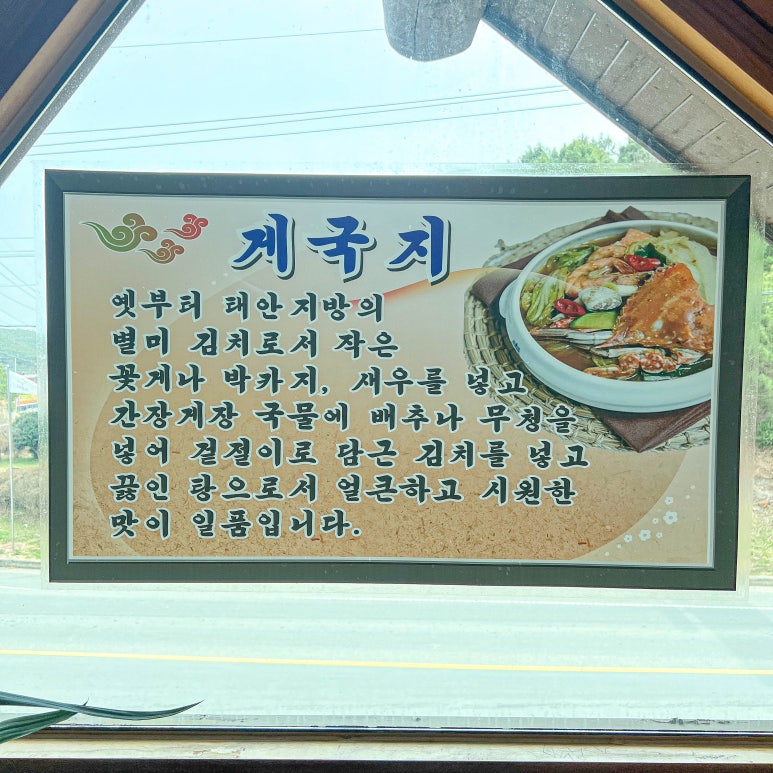 게국지
옛부터 태안지방의
별미 김치로서 작은
꽃게나 박카지, 새우를 넣고
간장게장 국물에 배추나 무청을
넣어 겉절이로 담근 김치를 넣고
끓인 탕으로서 얼큰하고 시원한
맛이 일품입니다.